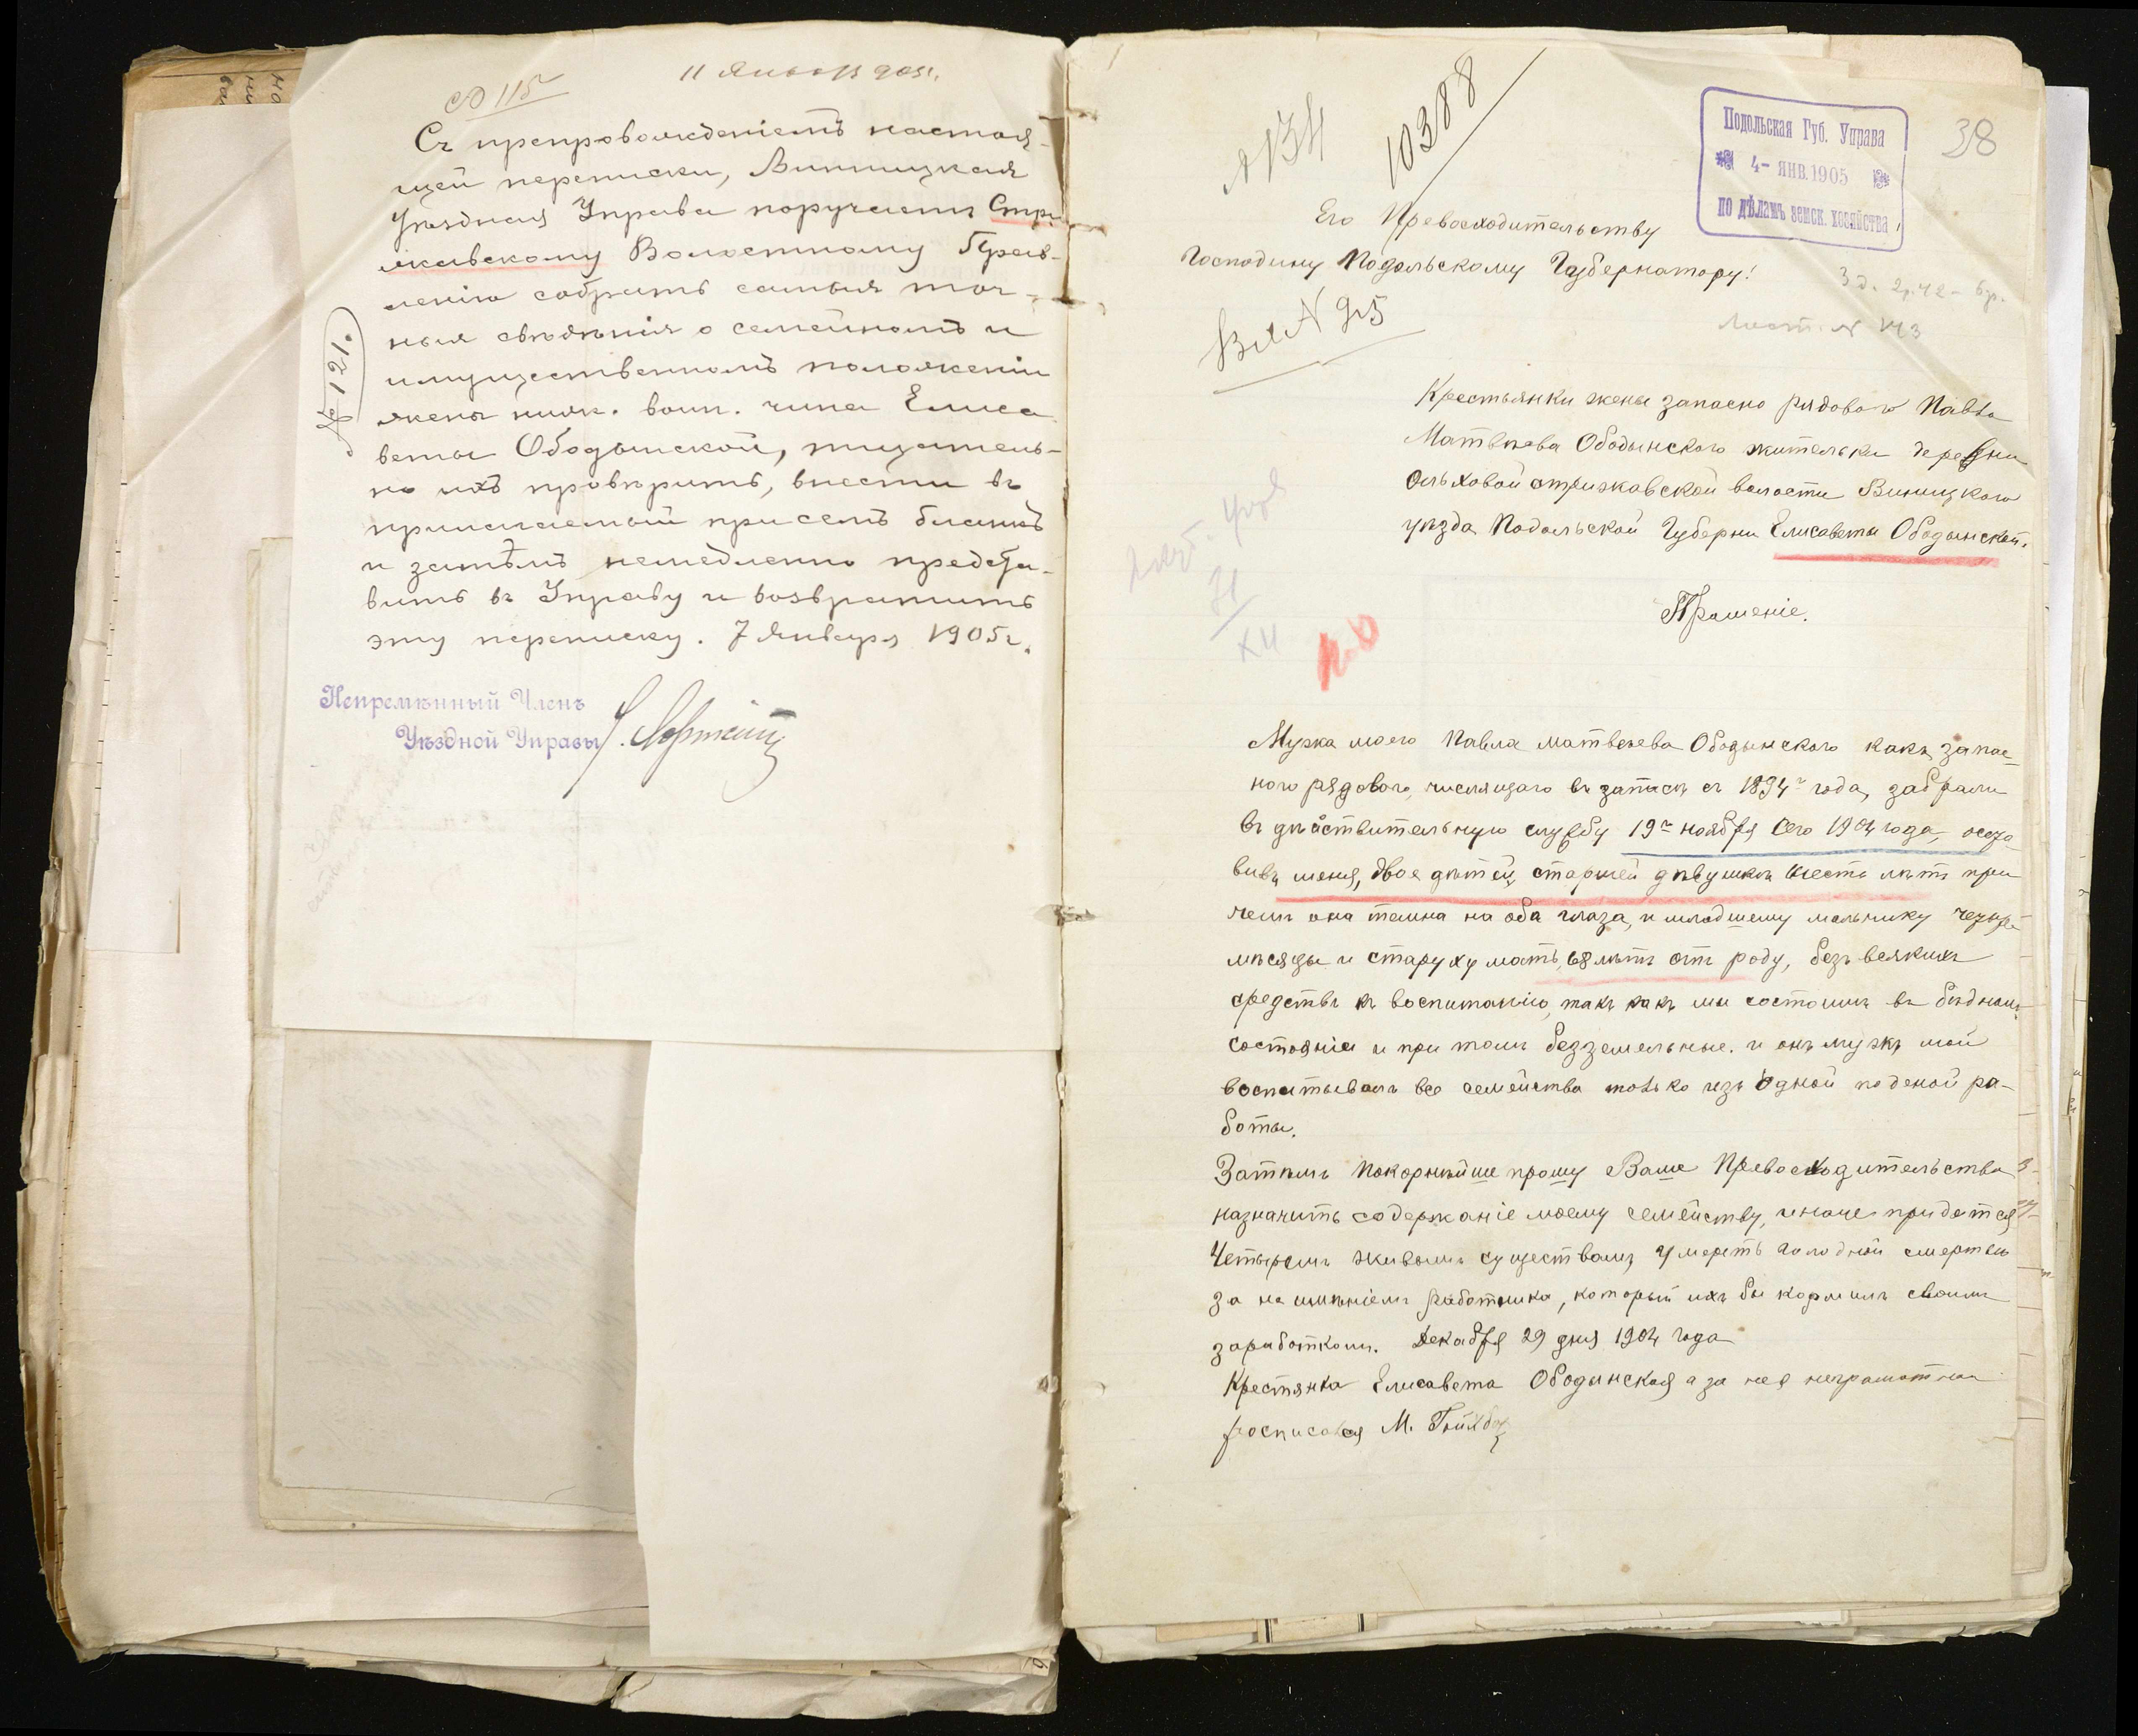 11 Января 905 г.
№ 115
Съ препровожденіемъ настоя-
щей переписки, Винницкая
Уѣздная Управа поручаетъ Стри
жавскому Волостному Прав-
ленію собрать самыя точ-
ныя свѣдѣнія о семейномъ и
имущественномъ положеніи
жены нижн. воин. чина Елиса
веты Ободынской, тщатель-
но ихъ провѣрить, внести въ
прилагаемый при семъ бланкъ
и затѣмъ немедленно предста-
вить въ Управу и возвратить
эту переписку. 7 Января 1905 г.
№ 121.
Непремѣнный Членъ
Уѣздной Управы
38
10388
Подольская Губ. Управа
4- ЯНВ. 1905
по дѣламъ земск. хозяйства
Его Превосходительству
Господину Подольскому Губернатору!
Вх. N 925
Крестьянки жены запасно рядового Павла
Матвѣева Ободынского жительки деревни
Ольховой стрижавской волости Виницкого
уѣзда Подольской Губерни Елисаветы Ободынской.
Прошеніе.
Мужа моего Павла матвѣева Ободынского какъ запас-
ного рядового, числящаго въ запасѣ съ 1894 г года, забрали
въ дѣйствительную службу 19 г ноября сего 1904 года, оста-
вивъ меня, двое дѣтей, старшей дѣвушкѣ шесть лѣтъ при
чемъ она темна на оба глаза, и младшему мальчику четыре
мѣсяцы и старуху мать, 68 лѣтъ отъ роду, безъ всякихъ
средствъ къ воспитанію, такъ какъ мы состоимъ въ бѣдномъ
состояніи и при томъ безземельные. и онъ мужъ мой
воспитывалъ все семейства только изъ одной поденой ра-
боты.
Затѣмъ покорнѣйше прошу Ваше Превосходительства
назначить содержаніе моему семейству, иначе придется
Четыремъ живымъ существамъ умереть голодной смертью
за не имѣніемъ работника, который ихъ бы кормилъ своимъ
заработкомъ. Декабря 29 дня 1904 года
Крестянка Елисавета Ободынская а за нея неграмотная
росписался М.